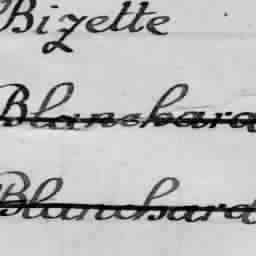 Bizette
Blanchard
Blanchard